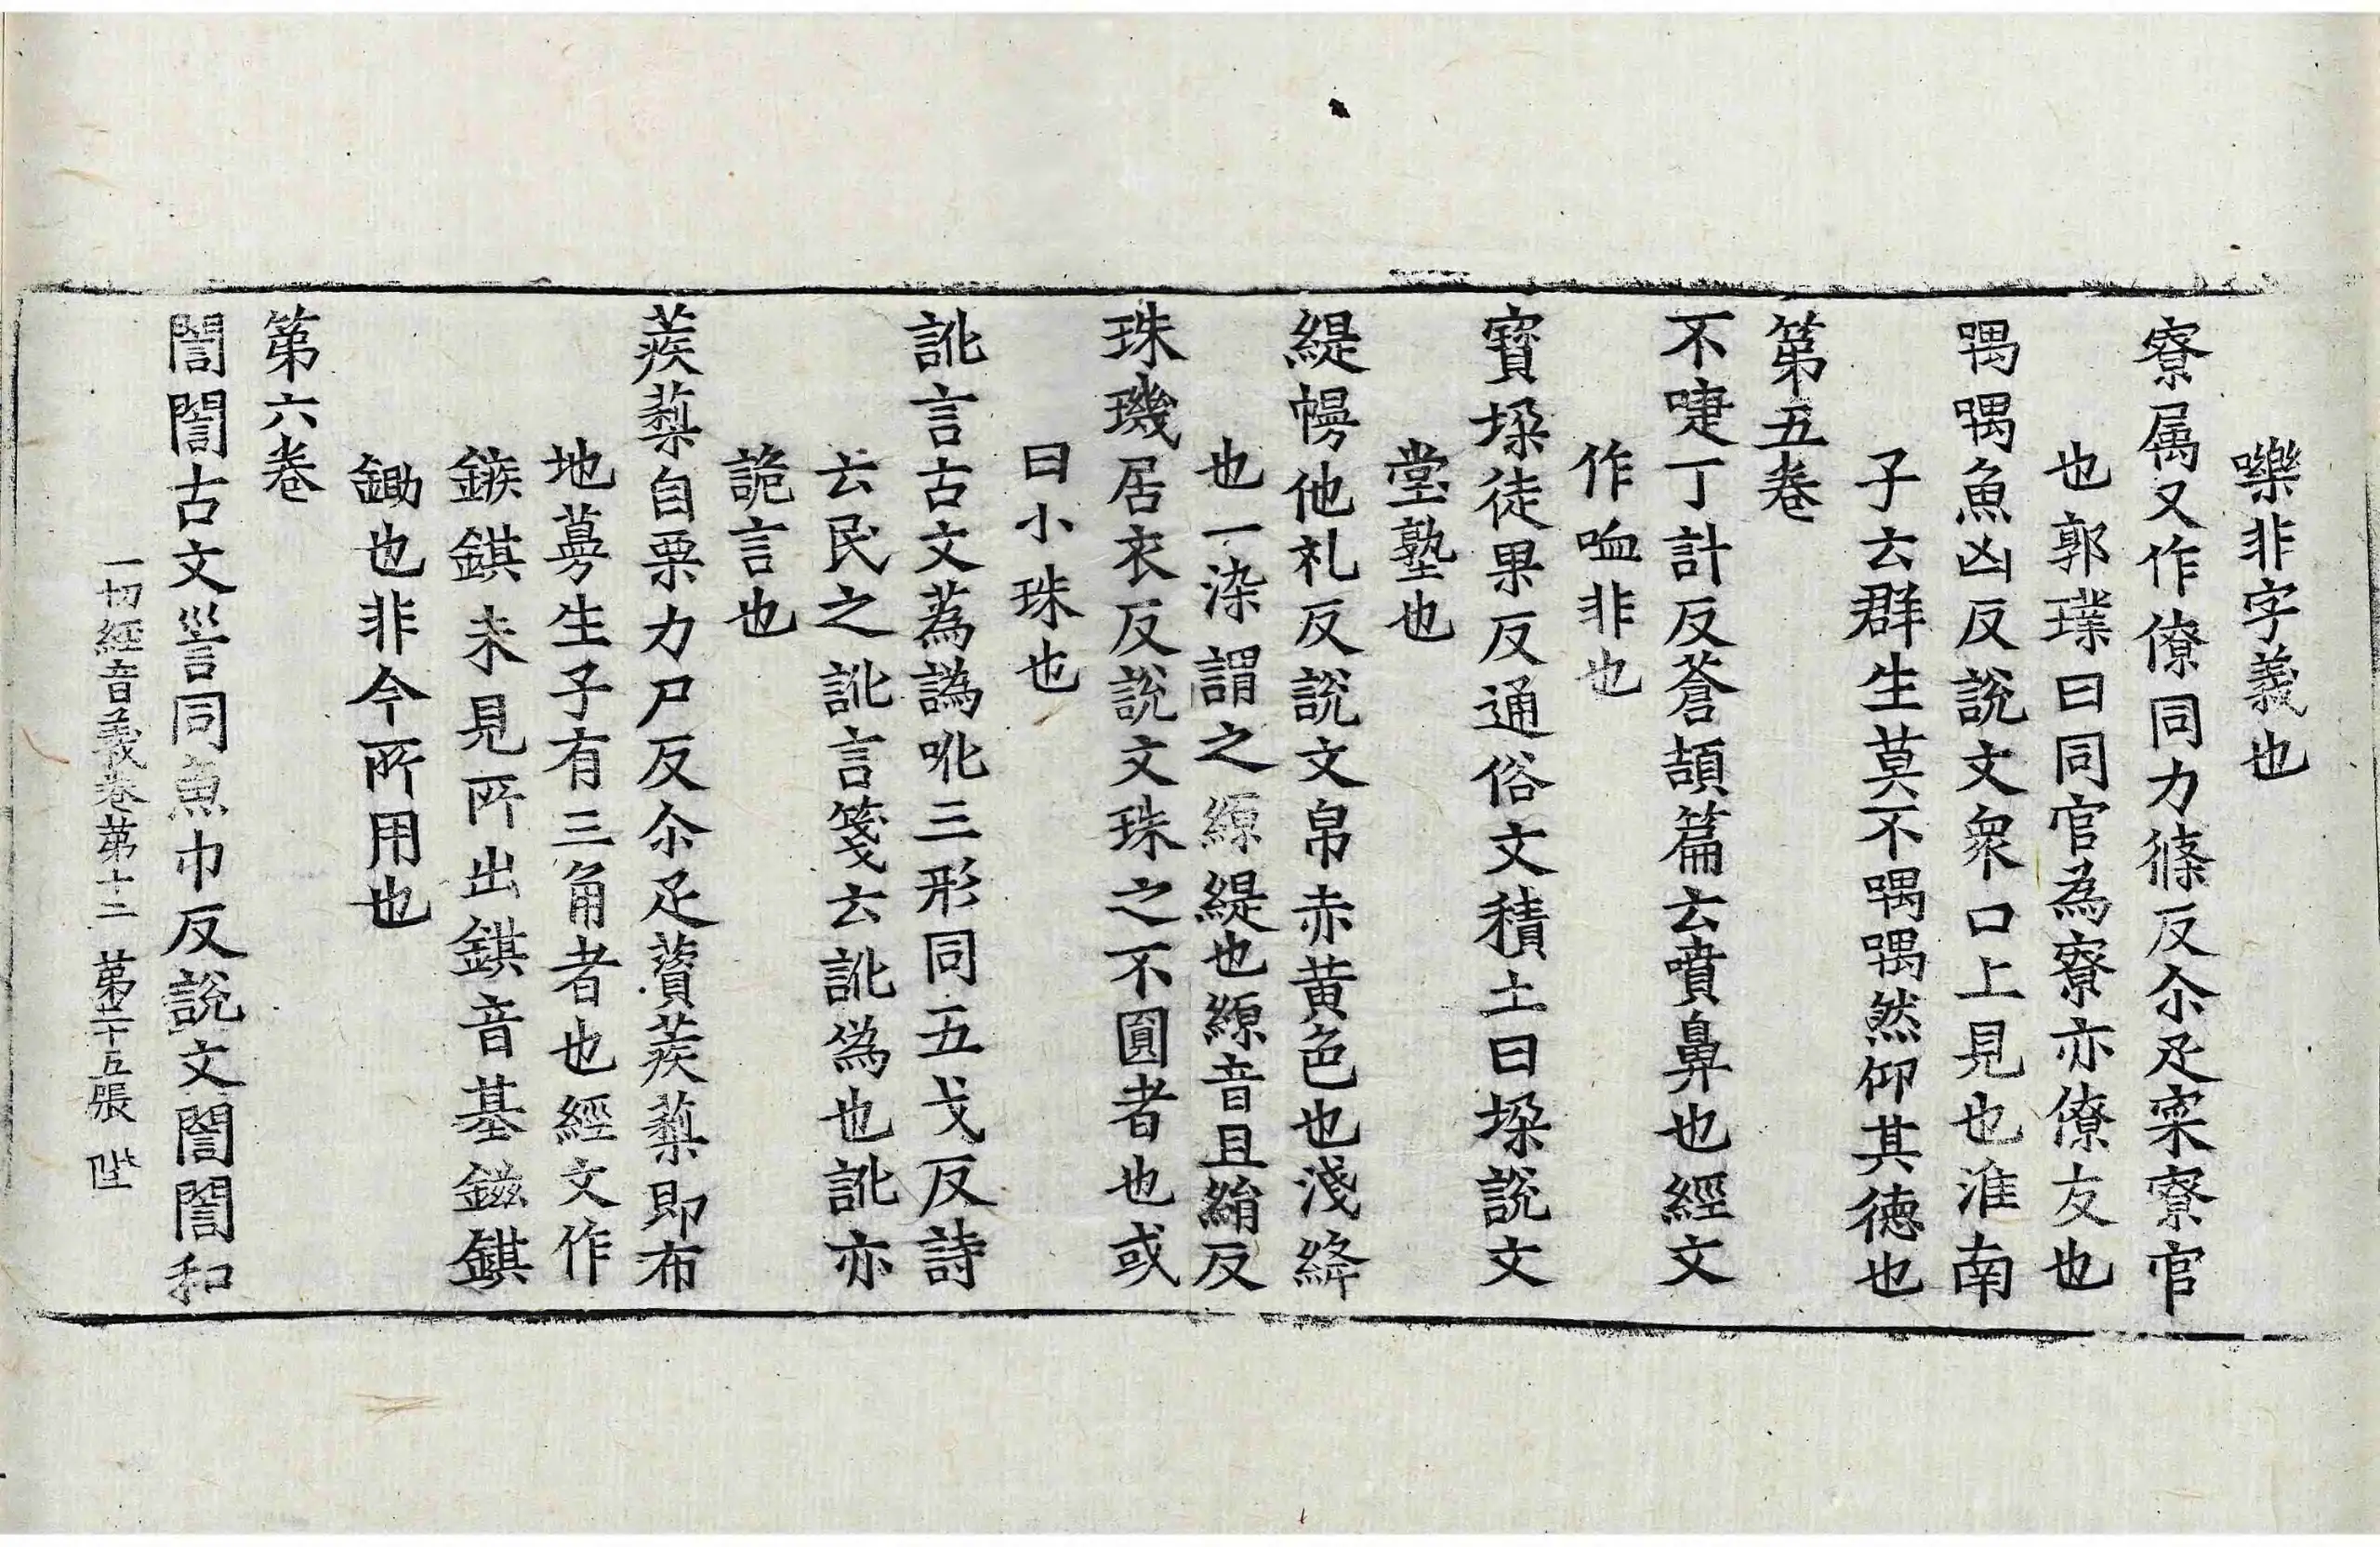 嚛非字義也
寮属又作僚同力條反尒疋寀寮官
也郭璞曰同官為寮亦僚友也
喁喁魚凶反說文衆口上見也淮南
子云群生莫不喁喁然仰其徳也
苐五卷
不疐丁計反蒼頡篇云噴鼻也經文
作㖶非也
寳垜徒果反通俗文積土曰垜說文
堂塾也
緹幔他礼反說文帛赤黄色也淺絳
也一染謂之縓緹也縓音且絹反
珠璣居衣反說文珠之不圎者也或
曰小珠也
訛言古文蔿譌吪三形同五戈反詩
云民之訛言箋云訛偽也訛亦
詭言也
蒺䔧自栗力尸反尒疋薋蒺䔧即布
地蔓生子有三角者也經文作
鏃錤未見所出錤音基鎡錤
鋤也非今所用也
苐六卷
誾誾古文訔同魚巾反說文誾誾和
一切經音義卷苐十二 苐二十五張 陛